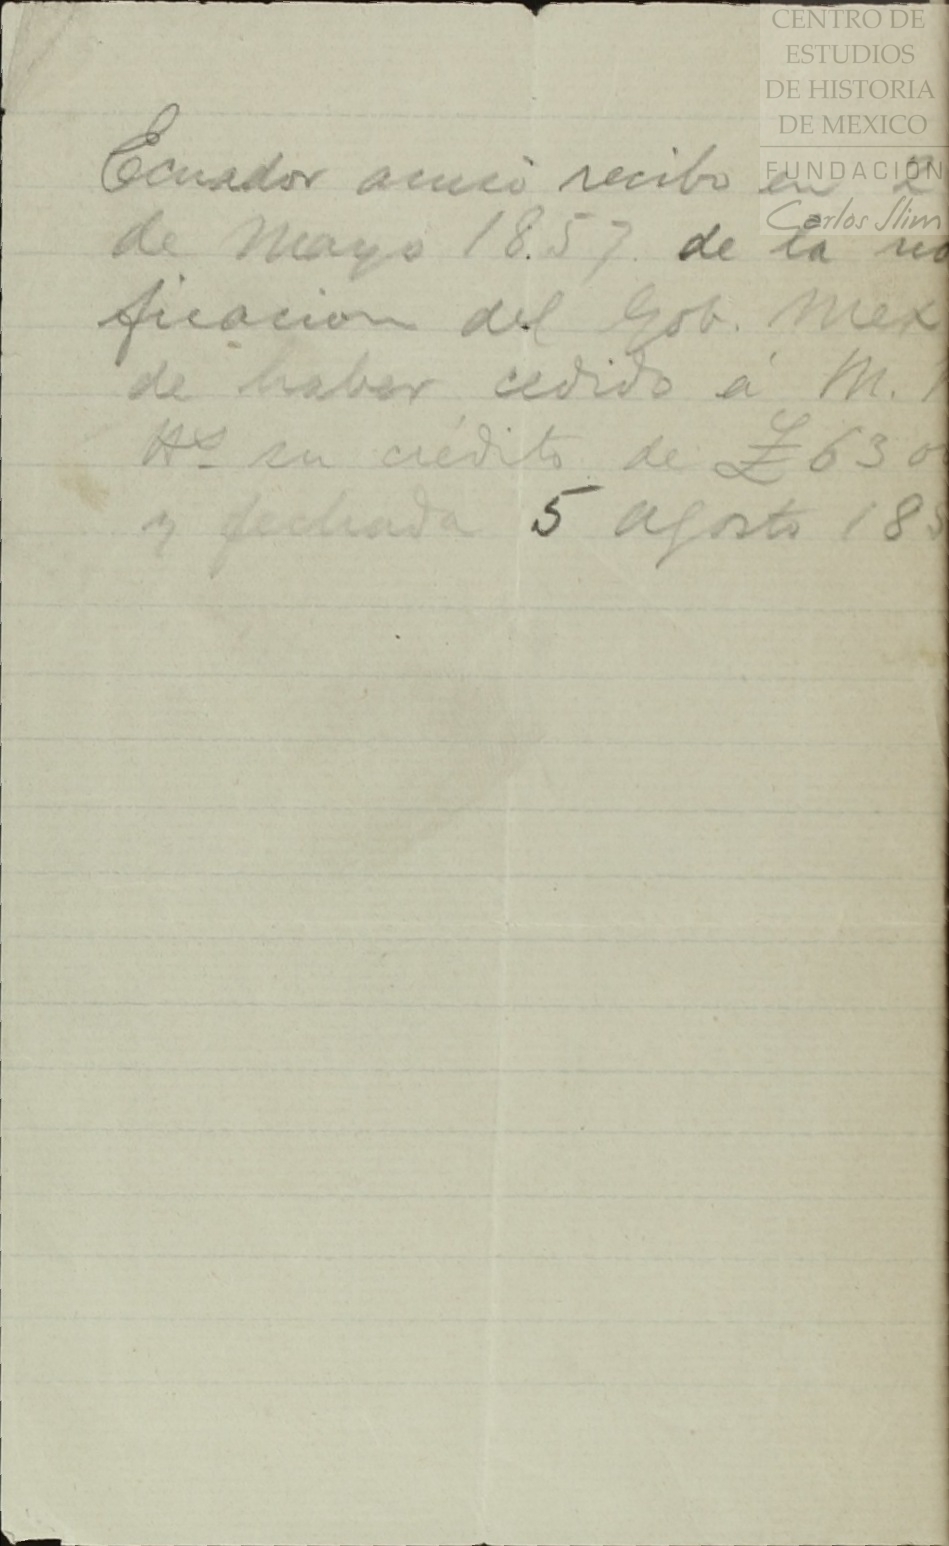 CENTRO DE
ESTUDIOS
DE HISTORIA
DE MEXICO
FUNDACIÓN
Carlos Slim
Ecuador acusó recibo en 2
de Mayo 1857. de la no
ficacion del Gob. Mex
de haber cedido á M.
Hs su crédito de £ 630
y fechada 5 Agosto 185